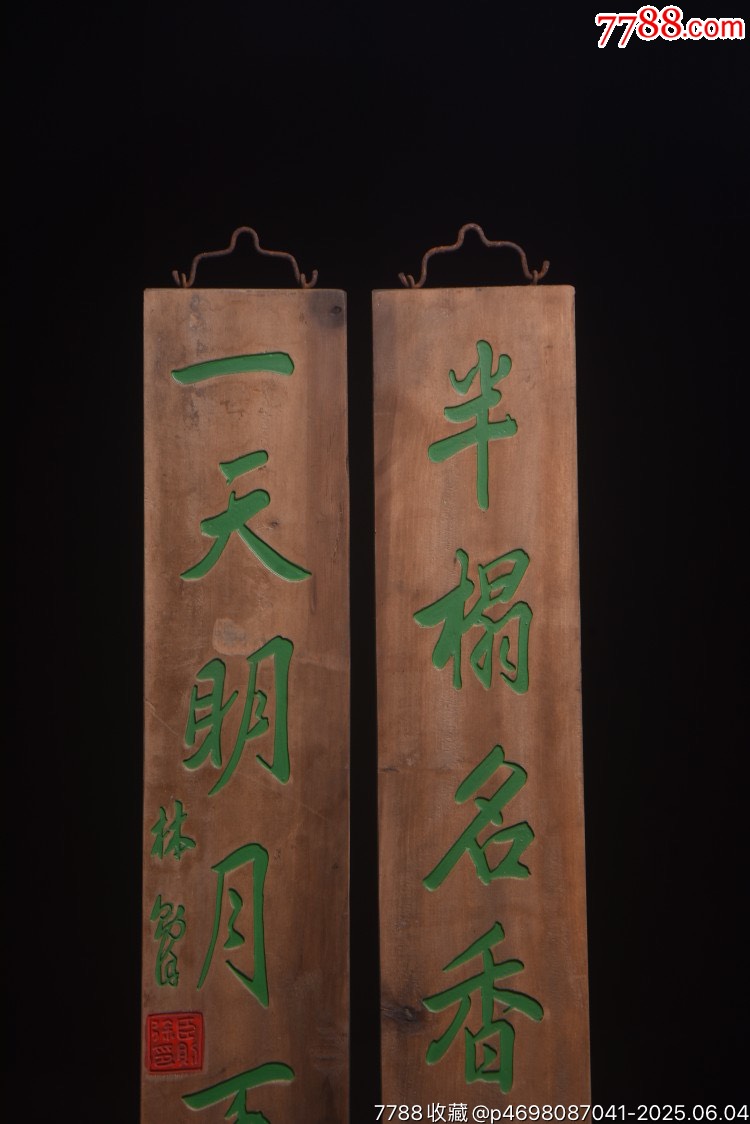 7788.com
半榻名香
一天明月
林則徐
臣則徐印
7788收藏@p4698087041-2025.06.04